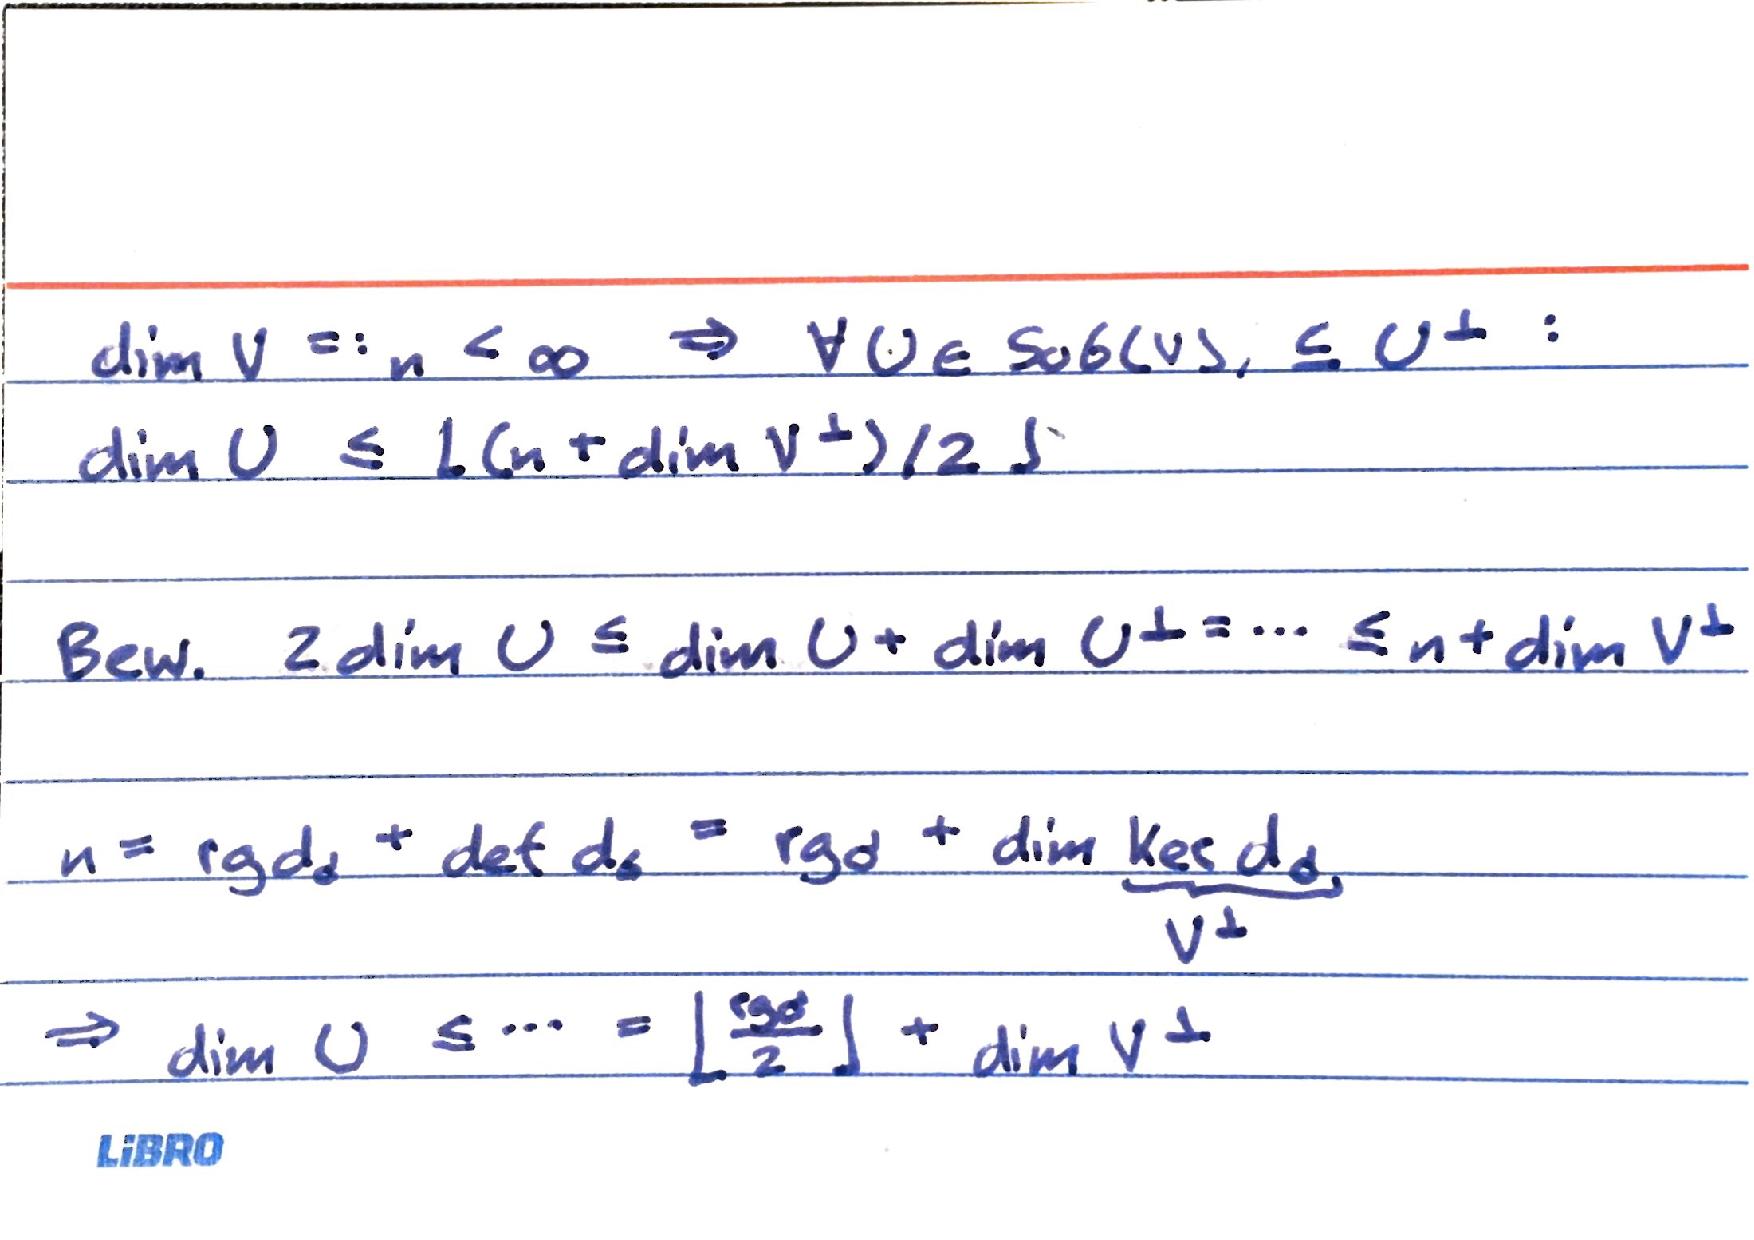 dim V =: n < ∞ ⇒ ∀ U ∈ Sub(V), ⊆ U⊥ :
dim U ≤ ⌊(n + dim V⊥)/2⌋
Bew. 2 dim U ≤ dim U + dim U⊥ = ... ≤ n + dim V⊥
n = rg dσ + def dσ = rg σ + dim Ker dσ
V⊥
⇒ dim U ≤ ... = ⌊rg σ / 2⌋ + dim V⊥
LiBRO